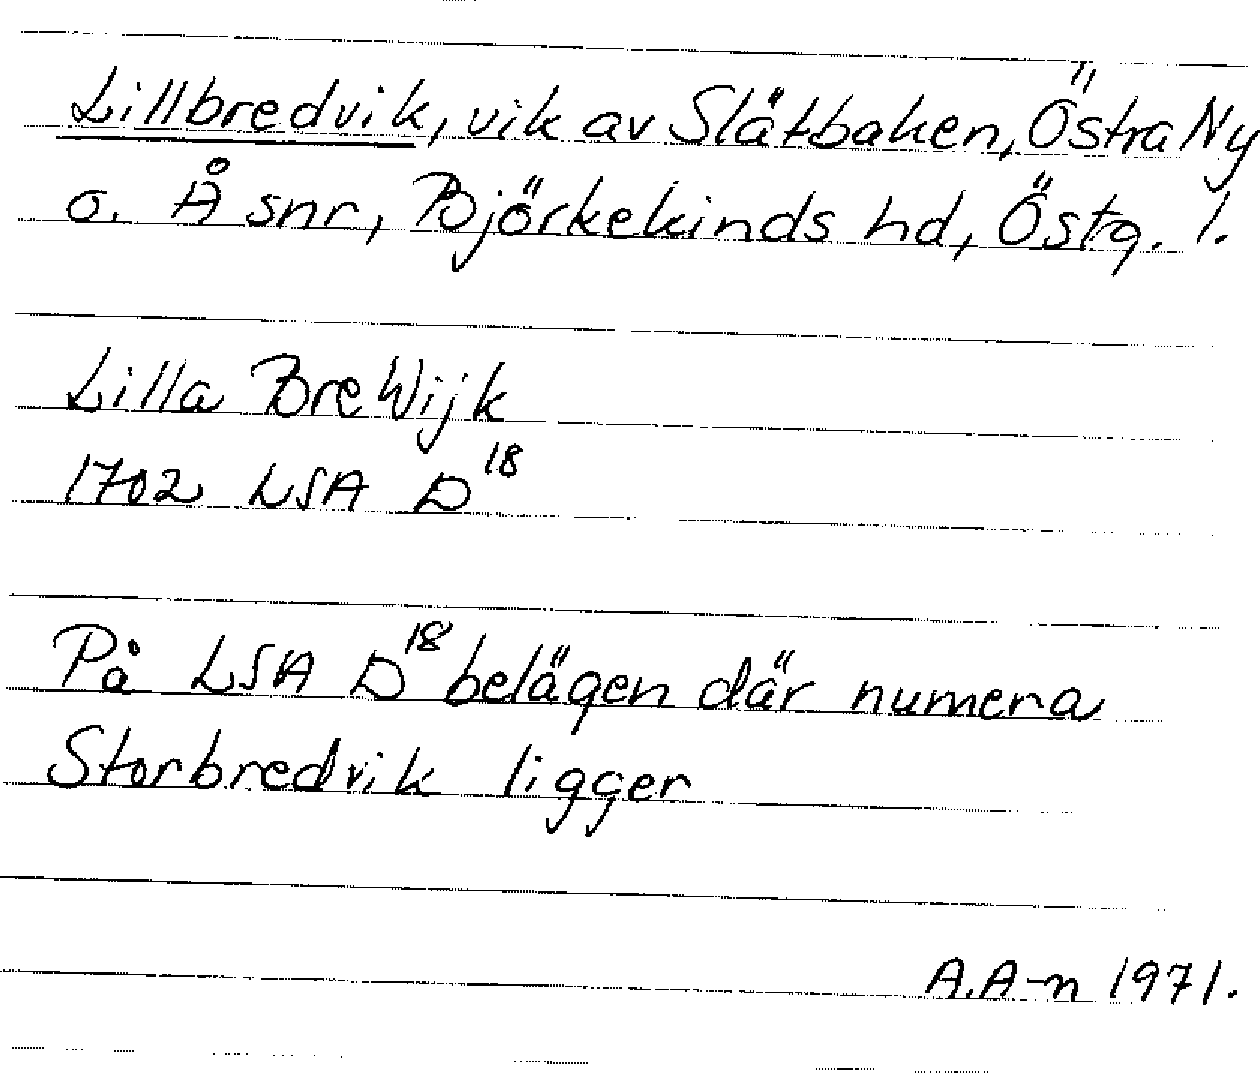 Lillbredvik, vik av Slätbaken, Östra Ny
o. Å snr, Björkekinds hd, Östg. l.
Lilla BreWijk
1702 LSA D18
På LSA D18 belägen där numera
Storbredvik ligger
A.A-n 1971.